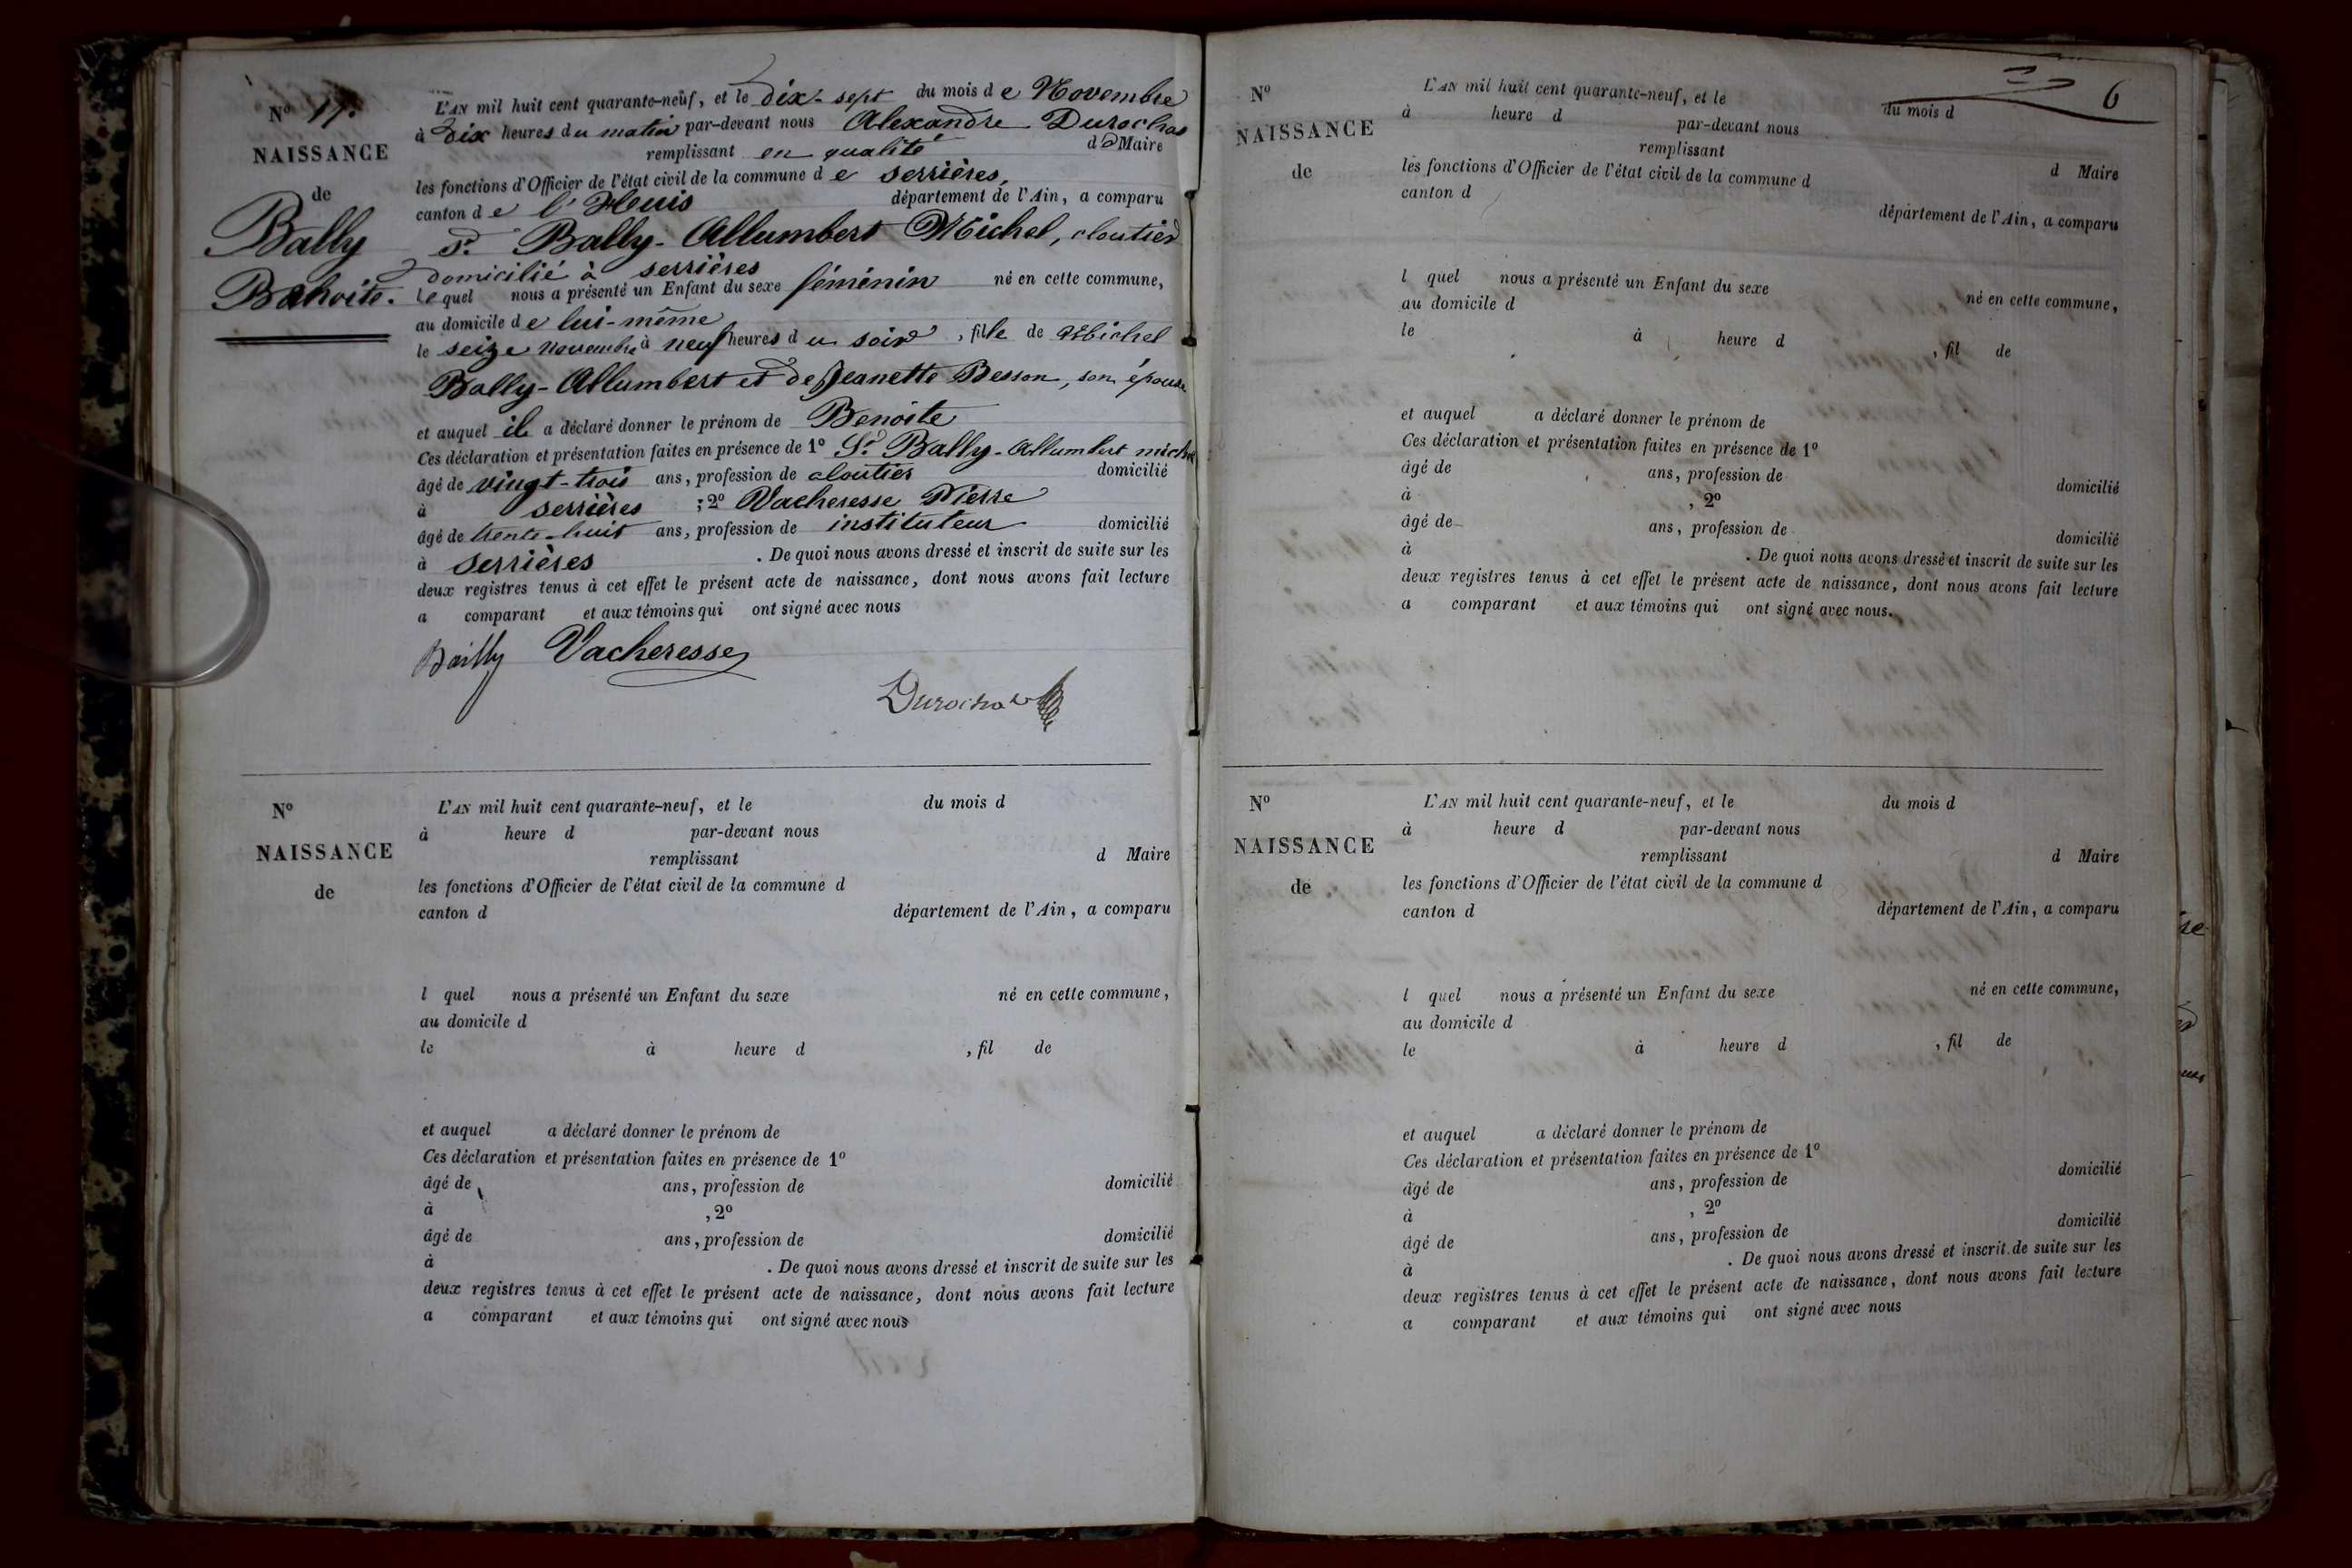 N° 17.
NAISSANCE
de
Bally
Benoite.
L'AN mil huit cent quarante-neuf, et le dix-sept du mois de Novembre
à dix heures du matin par-devant nous Alexandre Durochas
remplissant en qualité de Maire
les fonctions d'Officier de l'état civil de la commune de serrières,
canton de l'Huis département de l'Ain, a comparu
Sr. Bally-Allumbert Michel, cloutier
domicilié à serrières
lequel nous a présenté un Enfant du sexe féminin né en cette commune,
au domicile de lui-même
le seize novembre à neuf heures du soir, fille de Michel
Bally-Allumbert et de Jeanette Besson, son épouse
et auquel il a déclaré donner le prénom de Benoite
Ces déclaration et présentation faites en présence de 1° Sr. Bally-Allumbert michel
âgé de vingt-trois ans, profession de cloutier domicilié
à serrières ; 2° Vacheresse Pierre
âgé de trente-huit ans, profession de instituteur domicilié
à serrières . De quoi nous avons dressé et inscrit de suite sur les
deux registres tenus à cet effet le présent acte de naissance, dont nous avons fait lecture
a comparant et aux témoins qui ont signé avec nous
Bailly Vacheresse
Durochas
N°
NAISSANCE
de
L'AN mil huit cent quarante-neuf, et le du mois d
à heure d par-devant nous
remplissant d Maire
les fonctions d'Officier de l'état civil de la commune d
canton d département de l'Ain, a comparu
l quel nous a présenté un Enfant du sexe né en cette commune,
au domicile d
le à heure d , fil de
et auquel a déclaré donner le prénom de
Ces déclaration et présentation faites en présence de 1°
âgé de ans, profession de domicilié
à , 2°
âgé de ans, profession de domicilié
à . De quoi nous avons dressé et inscrit de suite sur les
deux registres tenus à cet effet le présent acte de naissance, dont nous avons fait lecture
a comparant et aux témoins qui ont signé avec nous
6
N°
NAISSANCE
de
L'AN mil huit cent quarante-neuf, et le du mois d
à heure d par-devant nous
remplissant d Maire
les fonctions d'Officier de l'état civil de la commune d
canton d département de l'Ain, a comparu
l quel nous a présenté un Enfant du sexe né en cette commune,
au domicile d
le à heure d , fil de
et auquel a déclaré donner le prénom de
Ces déclaration et présentation faites en présence de 1°
âgé de ans, profession de domicilié
à , 2°
âgé de ans, profession de domicilié
à . De quoi nous avons dressé et inscrit de suite sur les
deux registres tenus à cet effet le présent acte de naissance, dont nous avons fait lecture
a comparant et aux témoins qui ont signé avec nous.
N°
NAISSANCE
de
L'AN mil huit cent quarante-neuf, et le du mois d
à heure d par-devant nous
remplissant d Maire
les fonctions d'Officier de l'état civil de la commune d
canton d département de l'Ain, a comparu
l quel nous a présenté un Enfant du sexe né en cette commune,
au domicile d
le à heure d , fil de
et auquel a déclaré donner le prénom de
Ces déclaration et présentation faites en présence de 1°
âgé de ans, profession de domicilié
à , 2°
âgé de ans, profession de domicilié
à . De quoi nous avons dressé et inscrit de suite sur les
deux registres tenus à cet effet le présent acte de naissance, dont nous avons fait lecture
a comparant et aux témoins qui ont signé avec nous